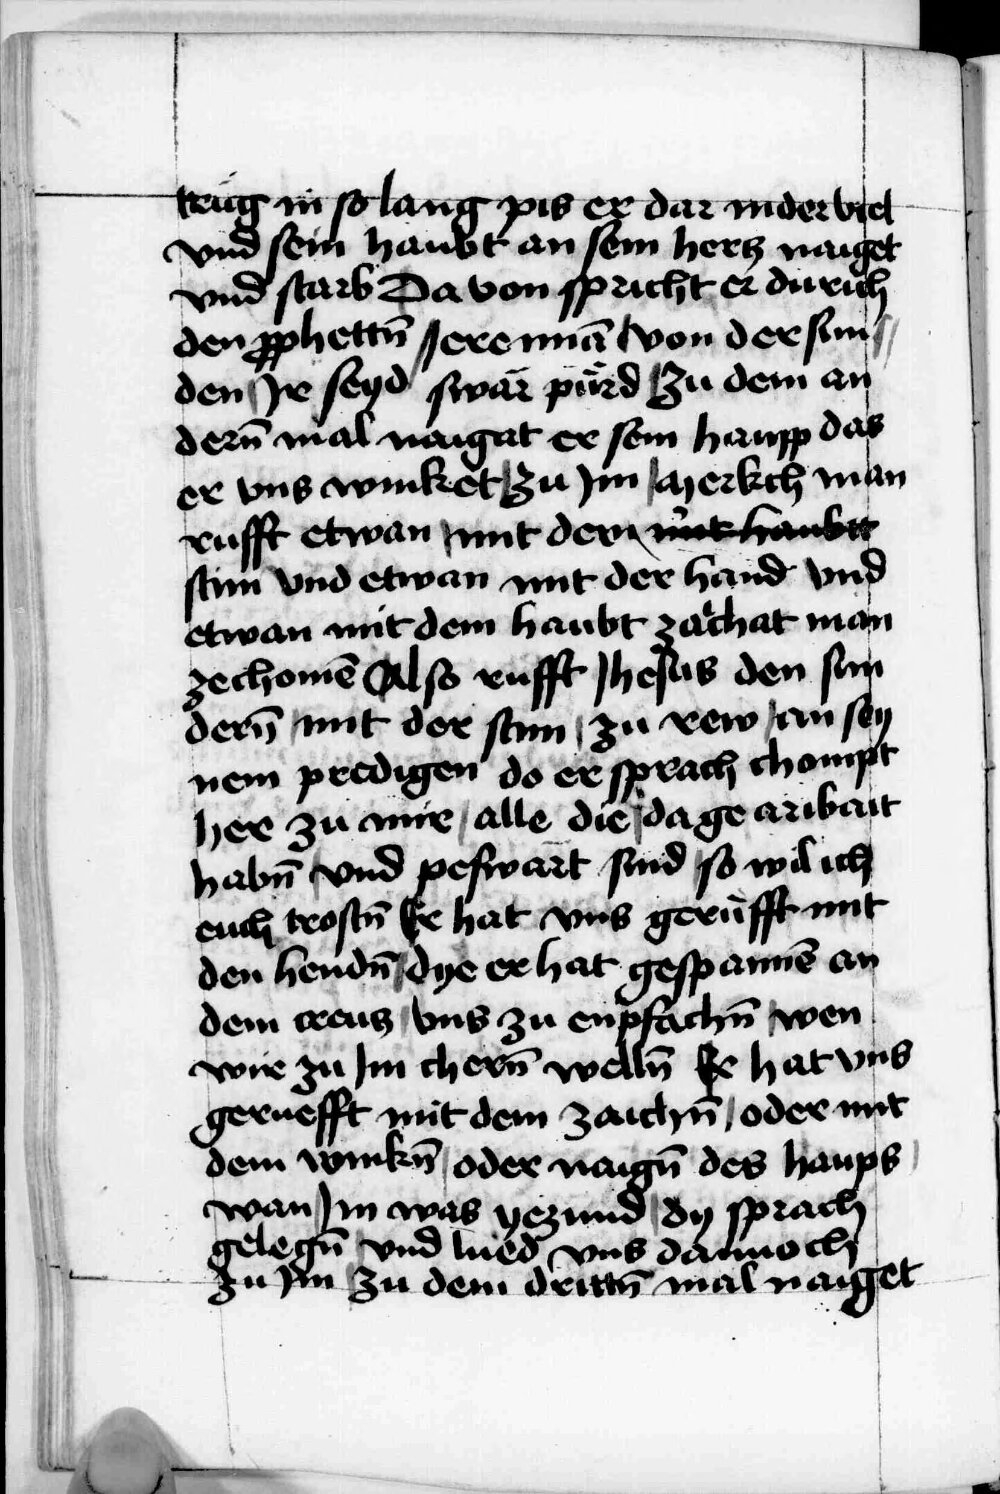 trüg in so lang pis er dar niderviel
vnd sein haubt an sein hertz naiget
vnd starb Da von spricht er durich
den ꝓphettn̄ Jeremiā von der sun
den Jr seyd swär pürd Zu dem an
dern̄ mal naigat er sein haupp das
er vns winket zu Jm Merkch man
rufft etwan mit der mit haubtt
stim vnd etwan mit der hand vnd
etwan mit dem haubt zaichat man
zechomē Also rufft Jhesus den sun
dern̄ mit der stim zu rew an sey
nem predigen do er sprach chompt
her zu mir alle die da ge aribait
habn̄ vnd peswärt sind so wil ich
euch trostn̄ Er hat vns gerüfft mit
den hendn̄ dye er hat gespannē an
dem creutz vns zu enpfachn̄ wen
wir zu Jm chern̄ welln̄ Er hat vns
geruefft mit dem zaichn̄ oder mit
dem winkn̄ oder naign̄ des haups
wan Jm was yezund dy sprach
gelegn̄ vnd lued vns dannoch
zu Jm Zu dem drittn̄ mal naiget